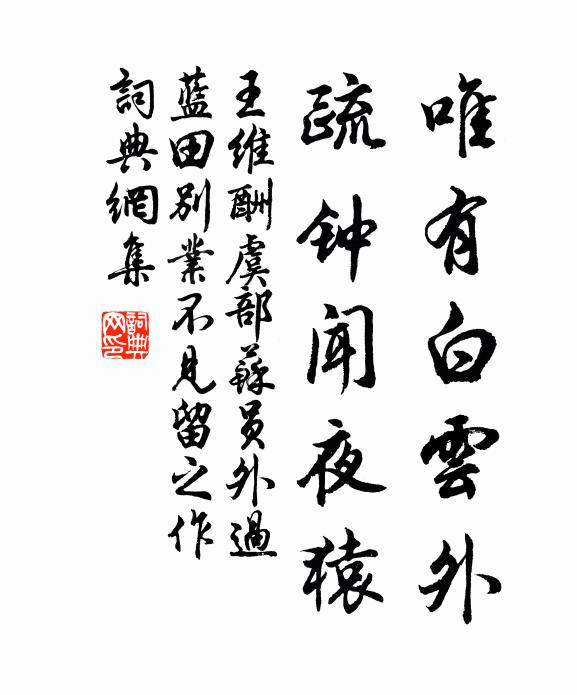 唯有白雲外
疏钟闻夜猿
王維酬虞部蘇员外過
藍田别業不見留之作
詞典網集
詞典
网印